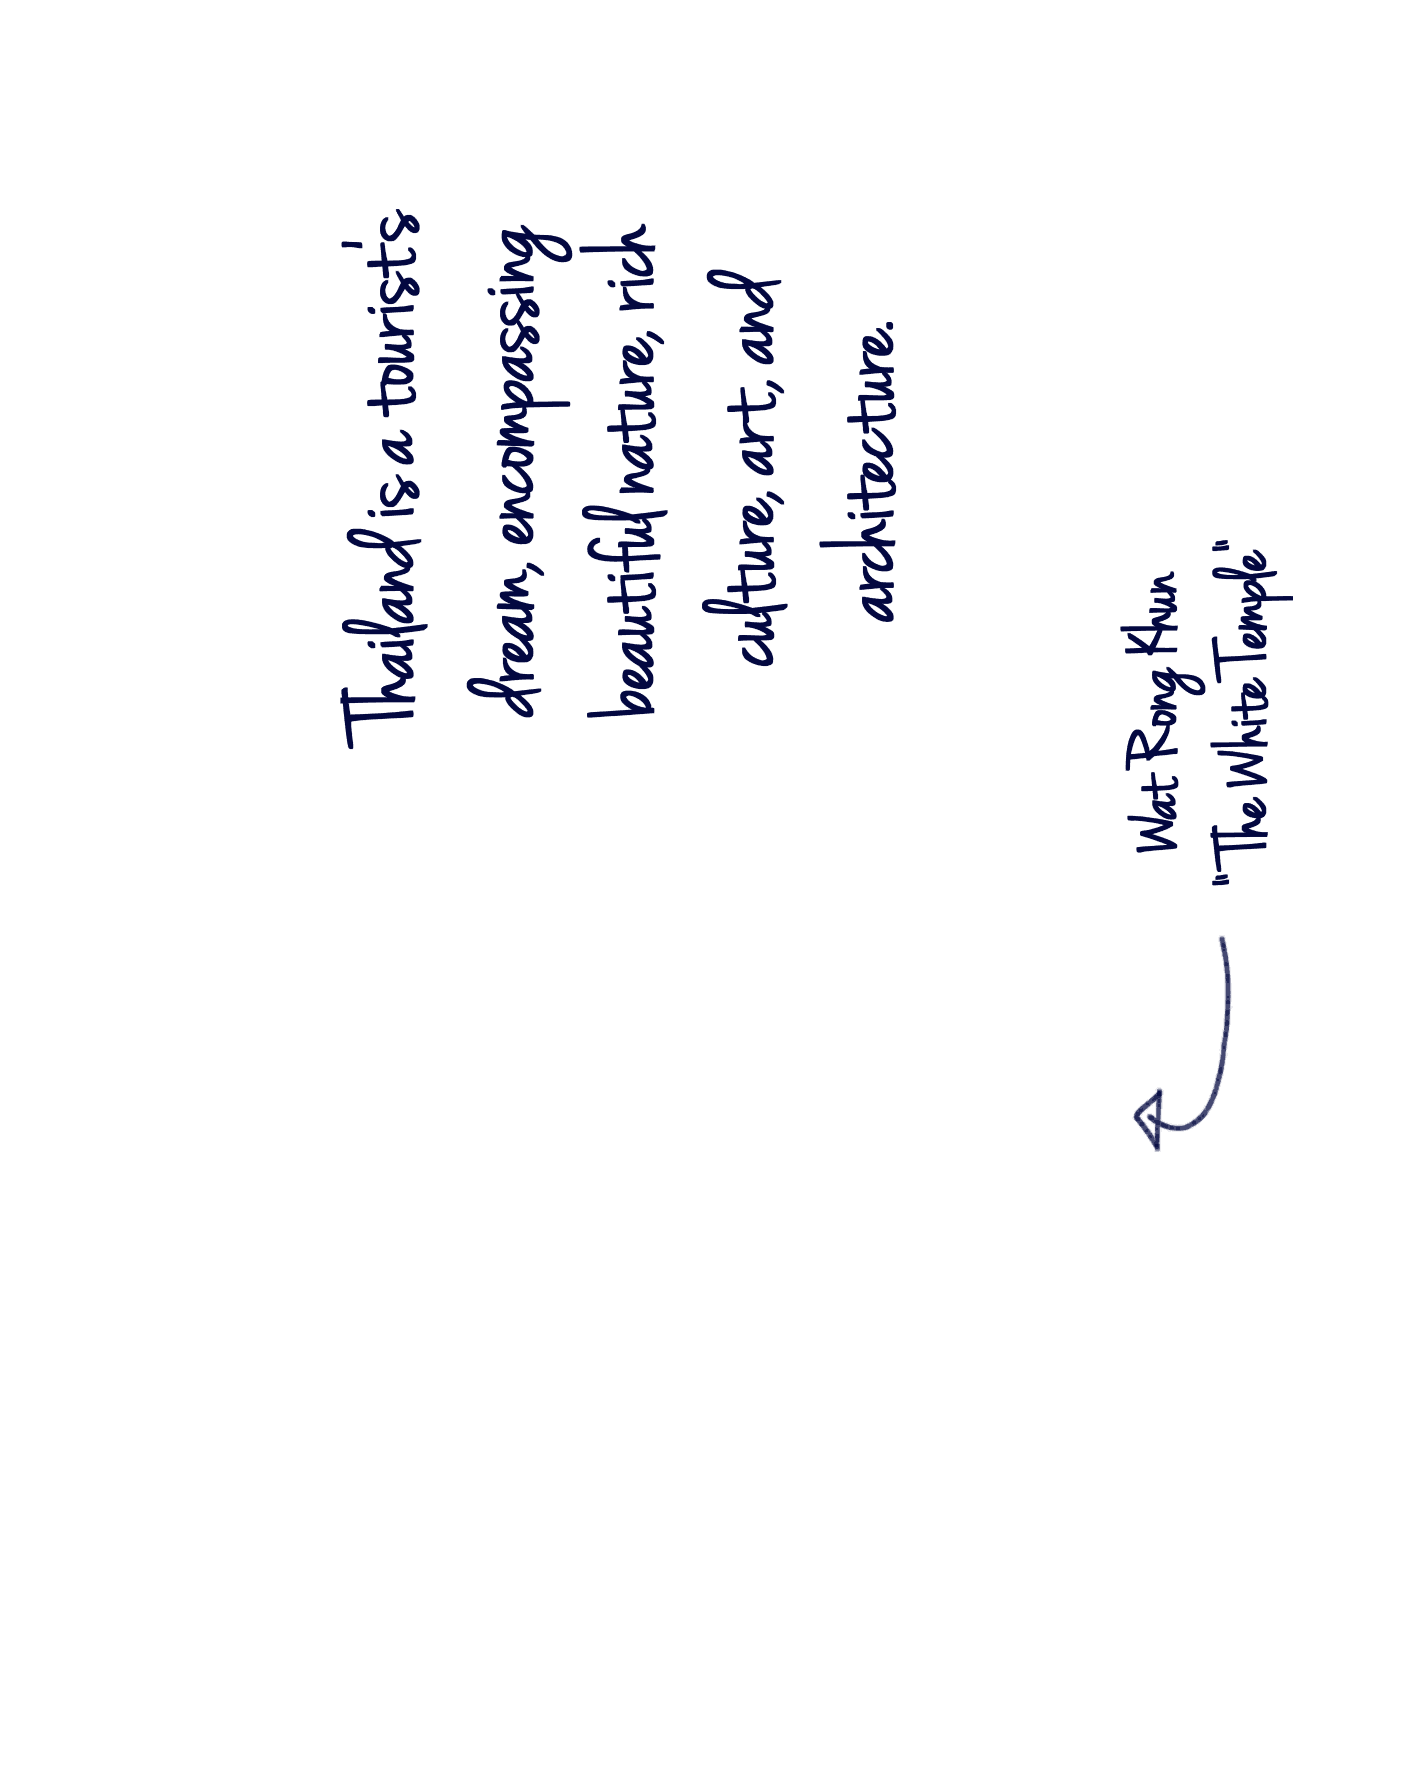 Thailand is a tourist's
dream, encompassing
beautiful nature, rich
culture, art, and
architecture.
Wat Rong Khun
"The White Temple"